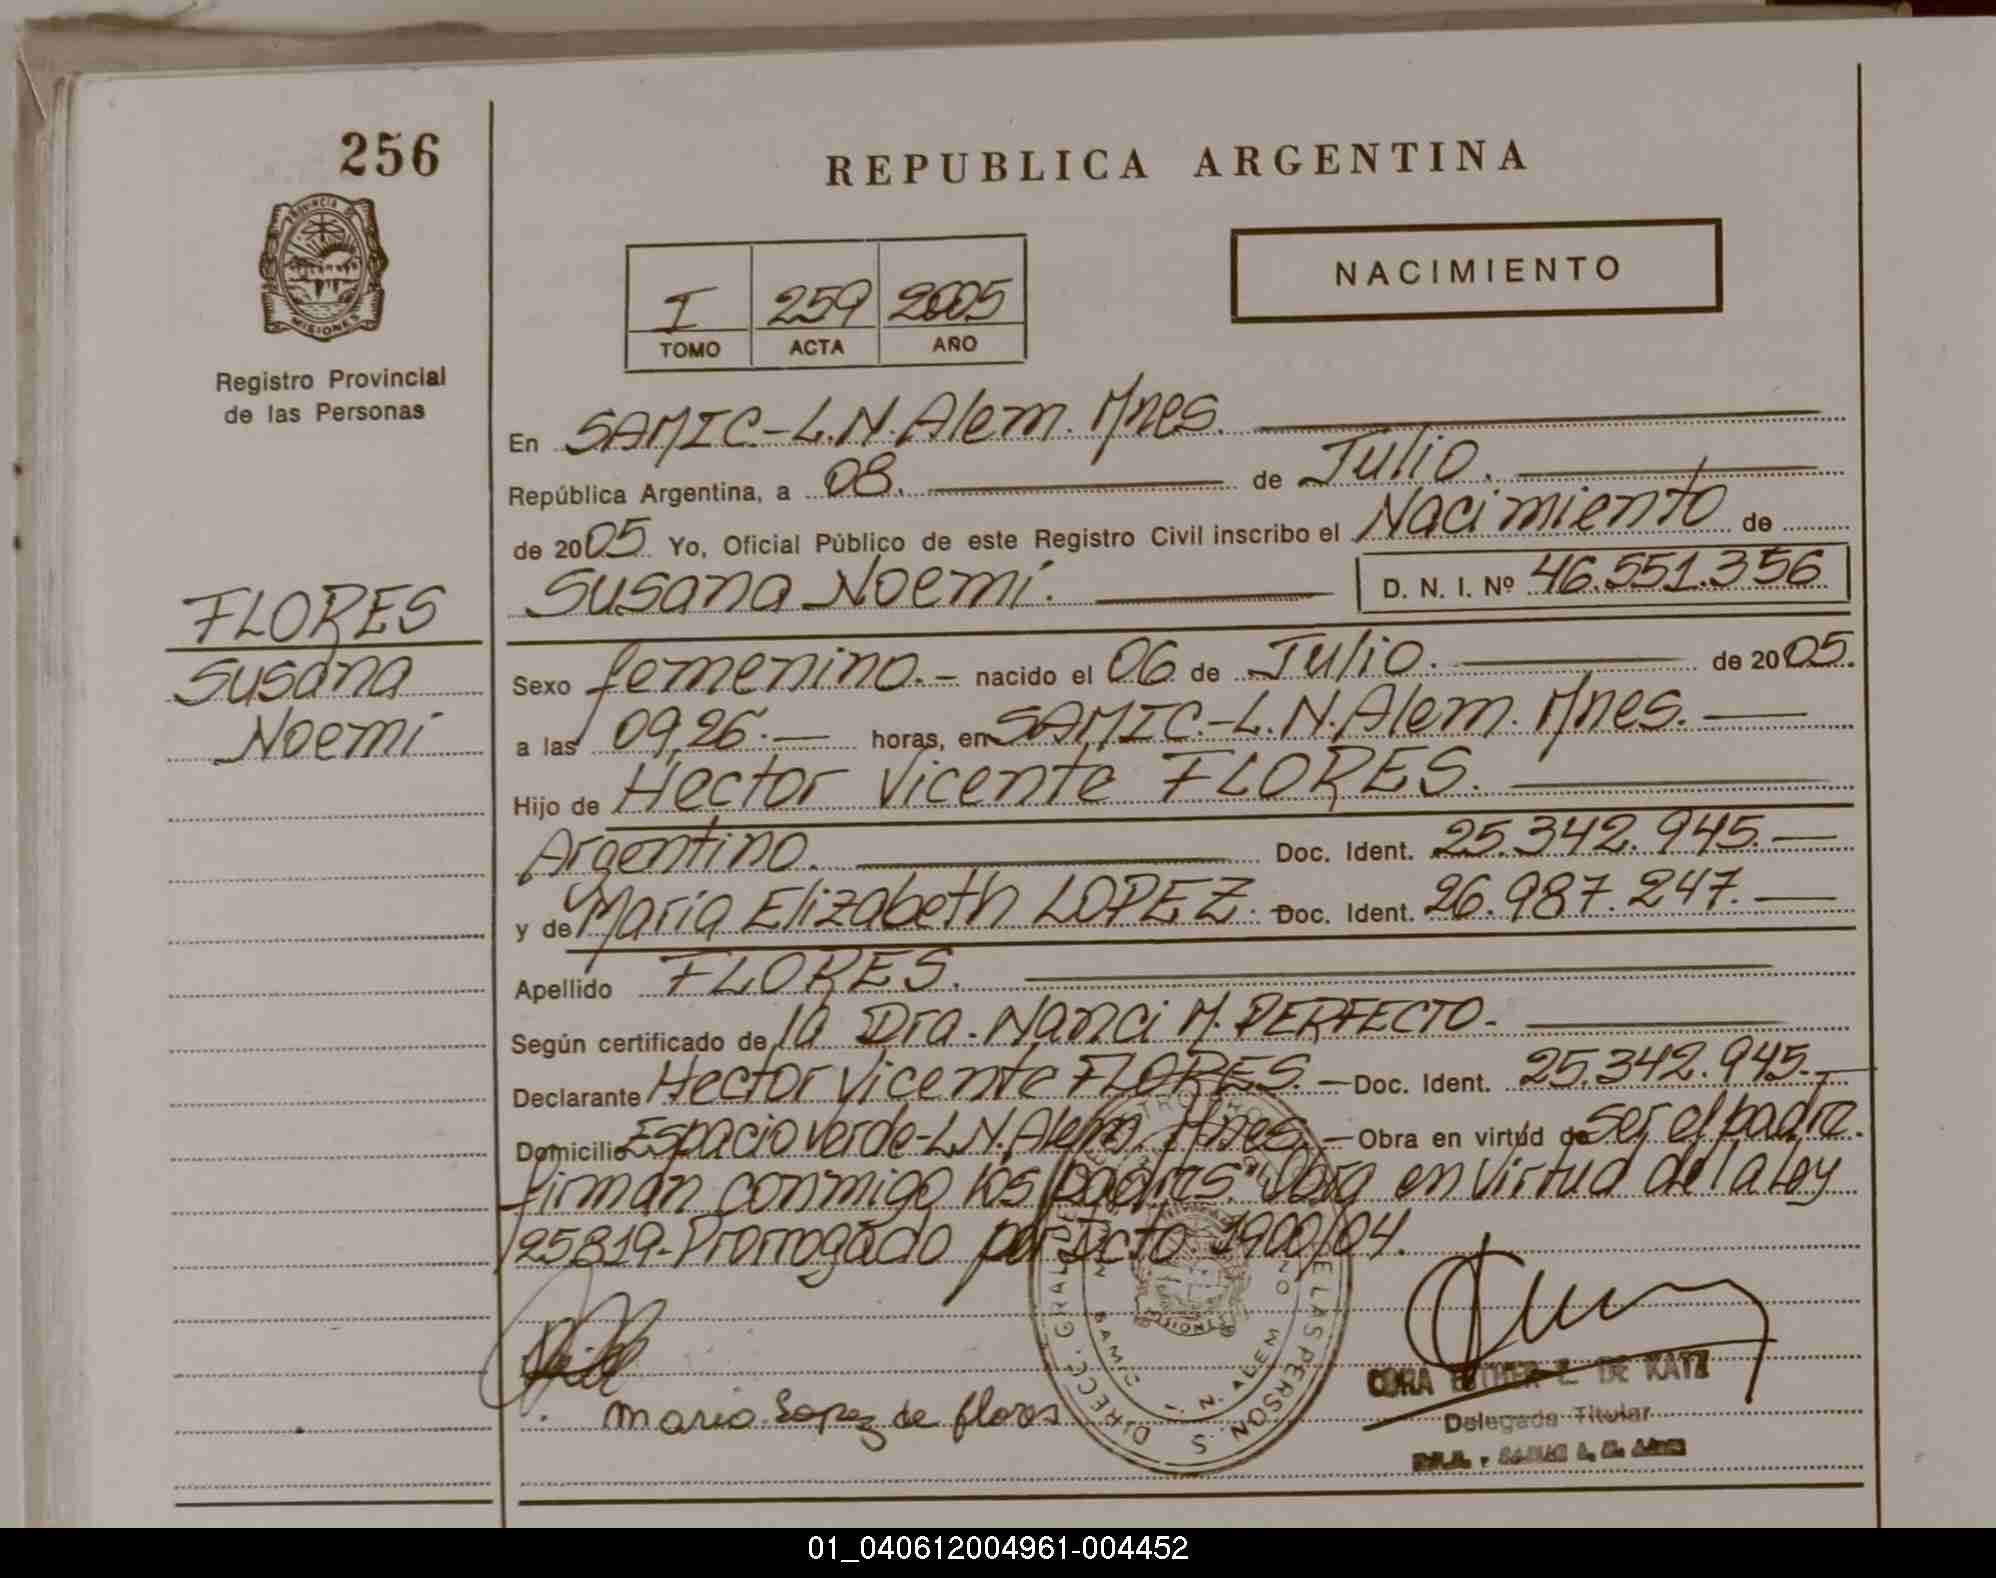 256
REPUBLICA ARGENTINA
PROVINCIA DE
MISIONES
Registro Provincial
de las Personas
I 259 2005
TOMO ACTA AÑO
NACIMIENTO
En SAMIC.-L.N.Alem. Mnes.
República Argentina, a 08. de Julio.
de 2005 Yo, Oficial Público de este Registro Civil inscribo el Nacimiento de
Susana Noemi. D. N. I. Nº 46.551.356
FLORES
Susana
Noemi
Sexo femenino.- nacido el 06 de Julio. de 2005.
a las 09,26.- horas, en SAMIC.-L.N.Alem. Mnes.
Hijo de Hector Vicente FLORES.
Argentino. Doc. Ident. 25.342.945.-
y de Maria Elizabeth LOPEZ. Doc. Ident. 26.987.247.-
Apellido FLORES.
Según certificado de la Dra. Nanci M. PERFECTO-
Declarante Hector Vicente FLORES.- Doc. Ident. 25.342.945.-
Domicilio Espacio verde-L.N.Alem. Mnes.- Obra en virtud de ser el padre.
firman conmigo los padres. Obra en virtud de la Ley
25819-Prorrogado por Dcto. 1900/04.
Maria Lopez de flores
DIRECC. GRAL. DE LAS PERSONAS
L. N. ALEM
CORA ESTHER E. DE KATZ
Delegada Titular
01_040612004961-004452